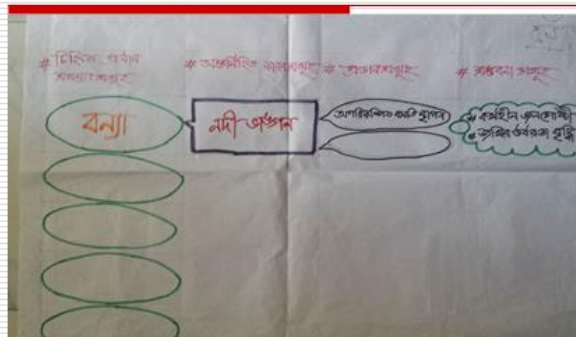 # চিহ্নিত প্রধান
সমস্যাসমূহ
# অন্তর্নিহিত কারণসমূহ
# প্রভাবসমূহ
# সম্ভাবনা সমূহ
বন্যা
নদী ভাঙ্গন
অপরিকল্পিত বসতি স্থাপন
# কর্মহীন জনগোষ্ঠী
# জমির উর্বরতা বৃদ্ধি